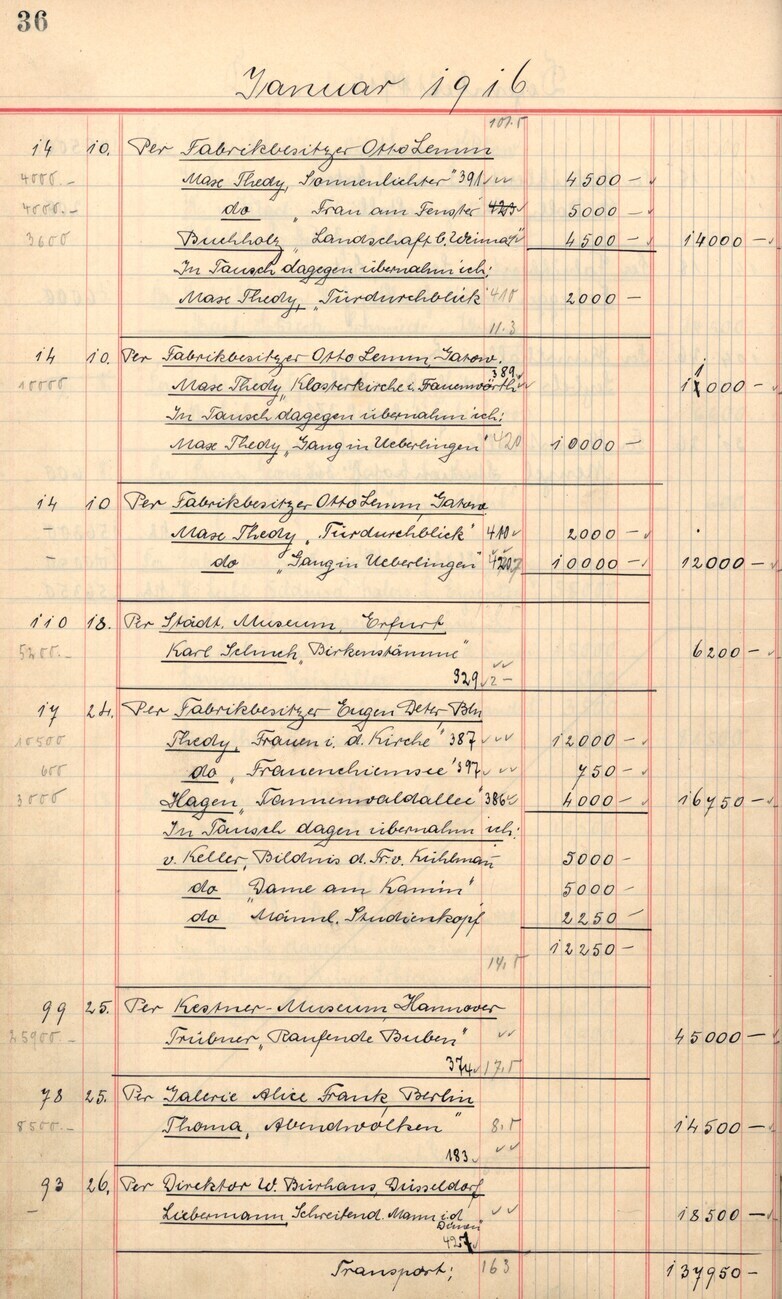 36
Januar 1916
107.5
14 10. Per Fabrikbesitzer Otto Lemm
4000.- Max Thedy, "Sonnenlichter" 391 4500 -
4000.- do "Frau am Fenster" 423 5000 -
3600 Buchholz "Landschaft b. Weimar" 4500 - 14000 -
In Tausch dagegen übernahm ich:
Max Thedy, "Türdurchblick" 410 2000 -
11.3
14 10. Per Fabrikbesitzer Otto Lemm, Gatow.
389
10000 Max Thedy "Klosterkirche i. Frauenwörth" 11000 -
In Tausch dagegen übernahm ich:
Max Thedy "Gang in Ueberlingen" 420 10000 -
14 10 Per Fabrikbesitzer Otto Lemm, Gatow
- Max Thedy "Türdurchblick" 410 2000 -
- do "Gang in Ueberlingen" 420 10000 - 12000 -
110 18. Per Städt. Museum, Erfurt
5200.- Karl Schuch "Birkenstämme" 6200 -
329 2 -
17 24. Per Fabrikbesitzer Eugen Deter, Bln
10500 Thedy, "Frauen i. d. Kirche" 387 12000 -
600 do "Frauenchiemsee" 397 750 -
3000 Hagen "Tannenwaldallee" 386 4000 - 16750 -
In Tausch dagen übernahm ich:
v. Keller, "Bildnis d. Fr. v. Kühlmann 5000 -
do "Dame am Kamin" 5000 -
do "Männl. Studienkopf 2250 -
12250 -
14.5
99 25. Per Kestner-Museum, Hannover
25900.- Trübner "Raufende Buben" 45000 -
374 17.5
78 25. Per Galerie Alice Frank, Berlin
8500.- Thoma, "Abendwolken" 8.5 14500 -
183
93 26. Per Direktor W. Bürhaus, Düsseldorf
- Liebermann, Schreitend. Mann i. d. Dünen 18500 -
427
Transport: 163 137950 -